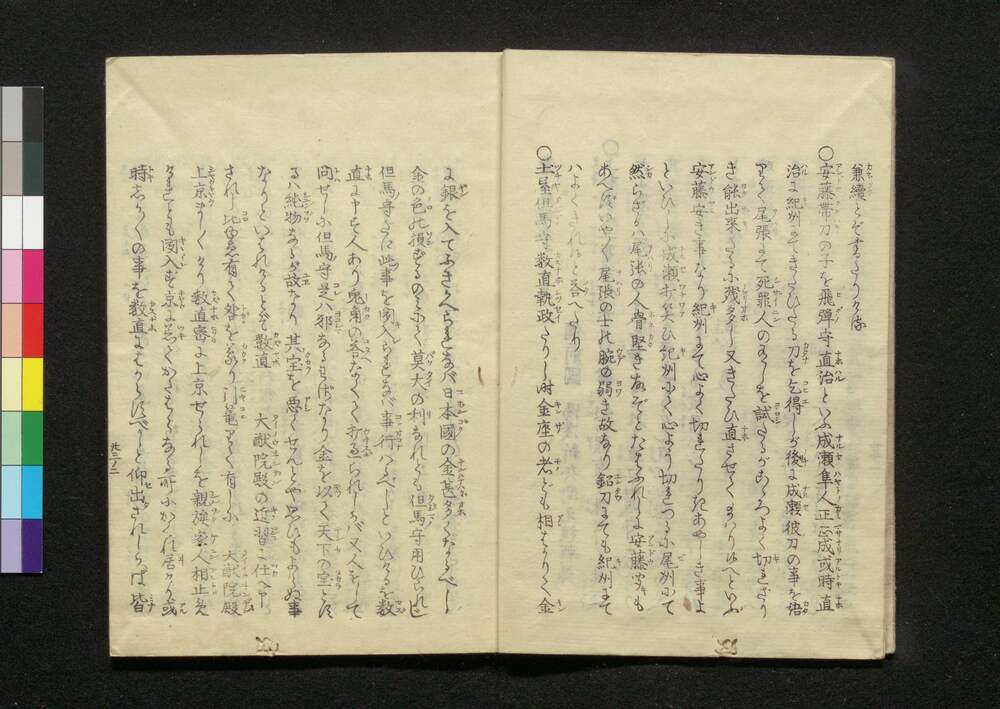 兼續とぞすゝりける
○安藤帯刀の子を飛彈守直治といふ成瀬隼人正正成或時直
治に紀州にてきたひたる刀を乞得しが後に成瀬彼刀の事を語
りて尾張にて死罪人のありしを試たるがこゝろよく切れざり
き能出来たるに残多し又きたひ直させてまいりゆへといふ
安藤安き事なり紀州にて心よく切れたりきあやしき事よ
といひしに成瀬打笑ひ紀州にてハ心よう切れつるに尾州にて
然らざるハ尾張の人骨堅き故ぞとたはふれしに安藤すも
あへずいやとよ尾張の士ハ腕の弱き故なり鉛刀にても紀州にて
ハよくきれゆと答へたり
○土屋但馬守数直執政たりし時金座の者ども相はかりて金
に銀を入てふきかへられなバ日本國の金甚多くなるべし
金の色ハ損ずるのミにて莫大の利なれども但馬守用ひられじ
但馬守さへ此事を聞入られなバ事行ハるべしといひけるを数
直に申す人あり兎角の答なくて打過られしかバ又人をして
問せしに但馬守是ハ邪なる事なり金を以て天下の宝とす
るハ純物なるが故なり其宝を悪くせんとや思ひもよらぬ事
なりといはれけるとぞ数直 大猷院殿の近習に仕へ申
されし比故有て外を家の門篭りて有しに 大猷院殿
上京ましましけり数直密に上京せられしを親強家人相止め
けれども聞入ず京に忍びてかたはらなる所にかくれ居けるが或
時しかじかの事を数直にはからはすべしと仰出されしかば皆